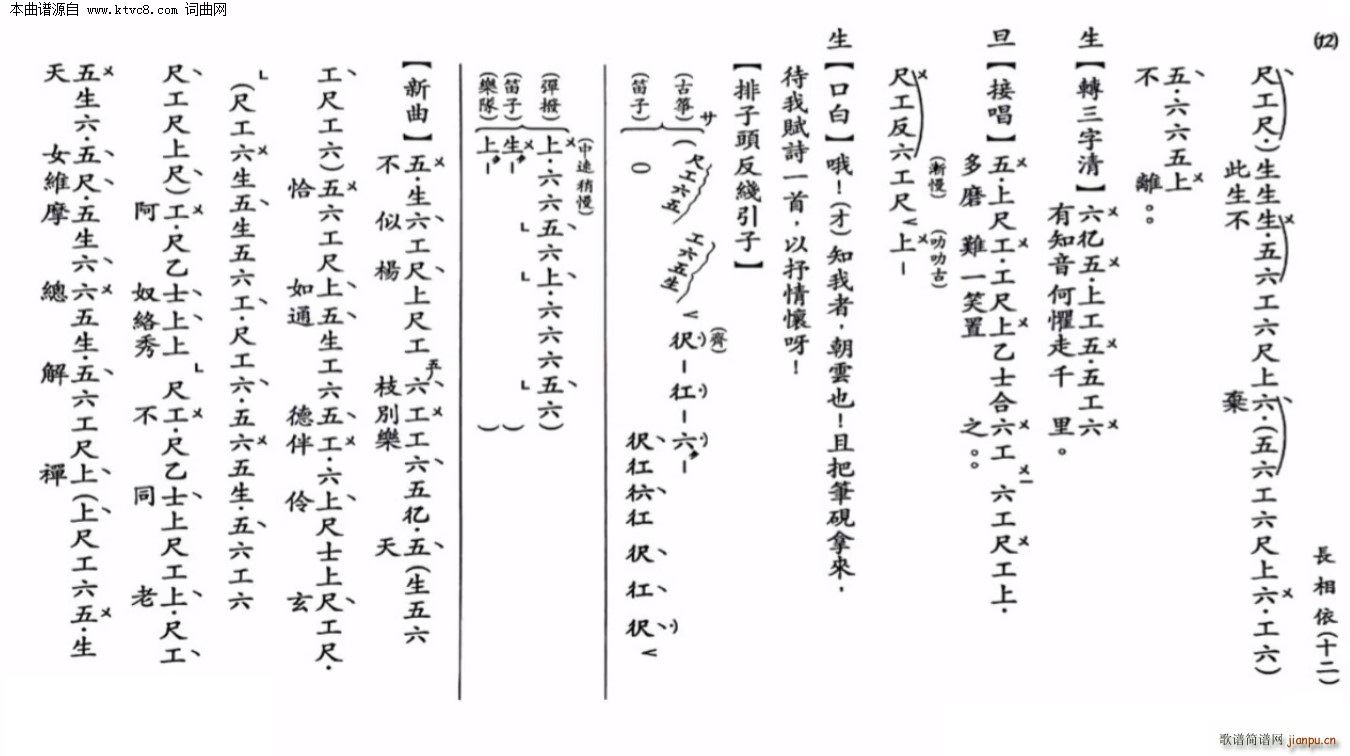 本曲谱源自 www.ktvc8.com 词曲网
(12)
長相依(十二)
尺工尺.)生生生.五六工六尺上六.(五六工六尺上六.工六)
此生不 棄
五.六六五上
不 離。。
生【轉三字清】六伬五.上工五.五工六
有知音何懼走千 里。
旦【接唱】五.上尺工.工尺上乙士合.六工 六工尺工上.
多磨 難一笑置 之。。
尺工反六工尺 上–
(漸慢) (叻叻古)
生【口白】哦!(才)知我者,朝雲也!且把筆硯拿來,
待我賦詩一首,以抒情懷呀!
【排子頭反綫引子】
サ
(古箏) (尺工六五 工六五生 伬–仜–六–
(齊)
(笛子) 0 伬仜𠆾仜 伬 仜 伬
(中速稍慢)
(彈撥) 上.六六五六上.六六六五六)
(笛子) 生– )
(樂隊) 上– )
【新曲】五.生六工尺上尺工六工工六五伬.五(生五六
不 似 楊 枝別樂 天
工尺工六)五六工尺上五生工六五工.六上尺士上尺工尺.
恰 如通 德伴 伶 玄
(尺工六生五生五六工.尺工六.五六五生.五六工六
尺工尺上尺)工.尺乙士上上 尺工.尺乙士上尺工上.尺工
阿 奴絡秀 不 同 老
五生六.五尺.五生六六五生.五六工尺上(上尺工六五.生
天 女維摩 總 解 禪
歌谱简谱网
jianpu.cn